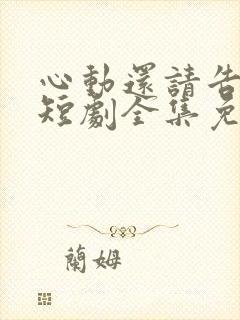 心動還請告
短劇全集免
蘭姆